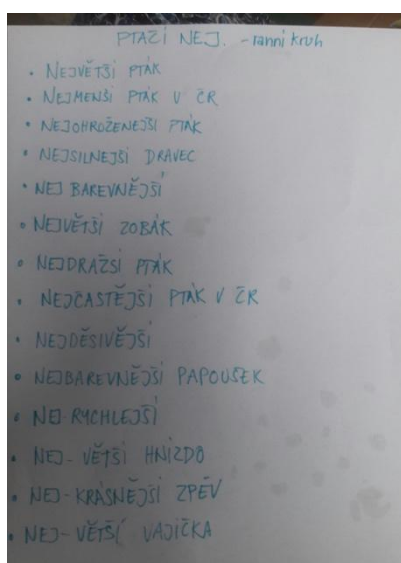 PTAČÍ NEJ. - ranní kruh
• NEJVĚTŠÍ PTÁK
• NEJMENŠÍ PTÁK V ČR
• NEJOHROŽENEJŠÍ PTÁK
• NEJSILNEJŠÍ DRAVEC
• NEJ BAREVNĚJŠÍ
• NEJVĚTŠÍ ZOBÁK
• NEJDRAŽSÍ PTÁK
• NEJČASTĚJŠÍ PTÁK V ČR
• NEJDĚSIVĚJŠÍ
• NEJBAREVNĚJŠÍ PAPOUŠEK
• NEJ-RYCHLEJŠÍ
• NEJ-VĚTŠÍ HNÍZDO
• NEJ-KRÁSNĚJŠÍ ZPĚV
• NEJ-VĚTŠÍ VAJÍČKA